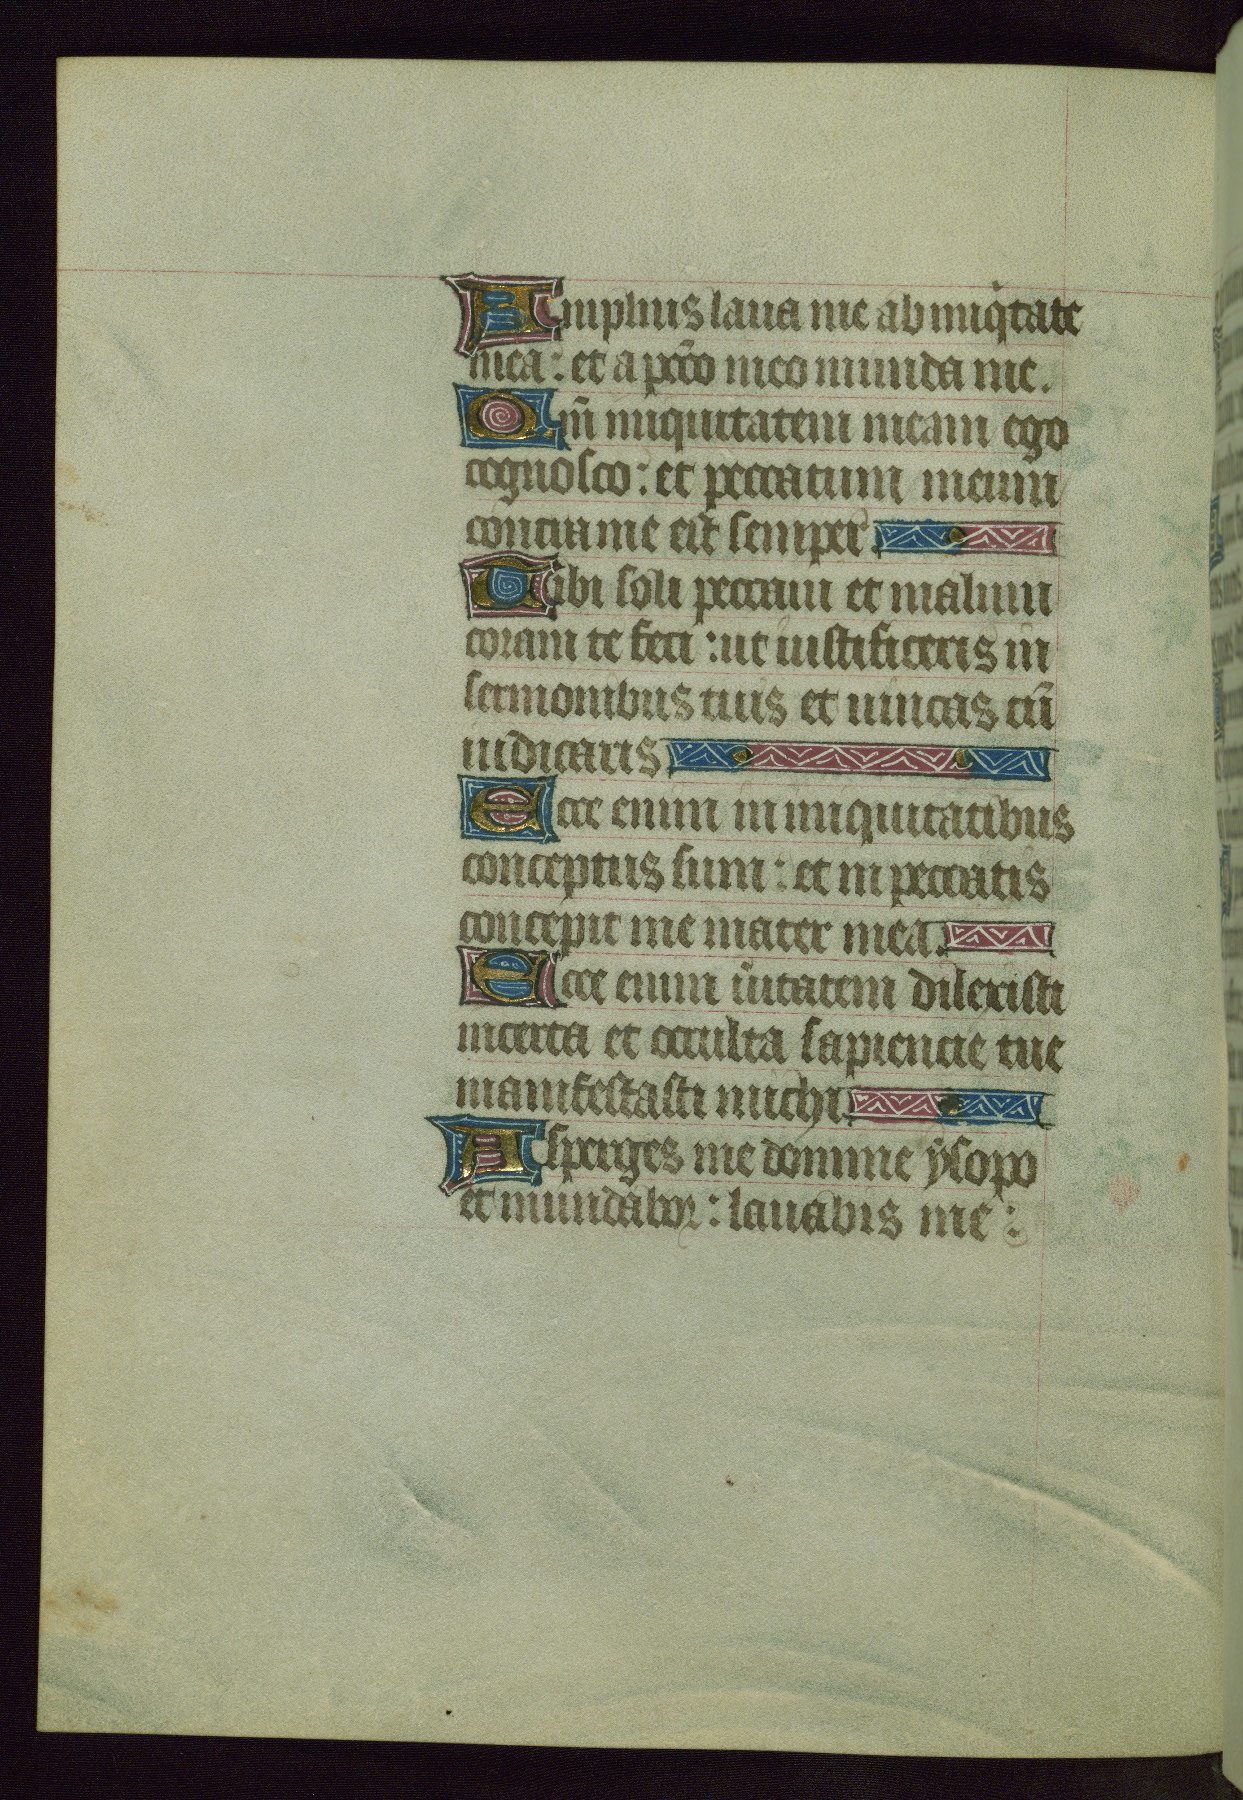 Amplius laua me ab iniq̍tate
mea : et a pcc̄o meo munda me .
Qm̄ iniquitatem meam ego
cognosco : et peccatum meum
contra me est semper .
Tibi soli peccaui et malum
coram te feci : ut iustificeris in
sermonibus tuis et uincas cū
iudicaris
Ecce enim in iniquitatibus
conceptus sum : et in peccatis
concepit me mater mea .
Ecce enim ūitatem dilexisti
incerta et occulta sapiencie tue
manifestasti michi .
Asperges me domine ysopo
et mundabor : lauabis me :